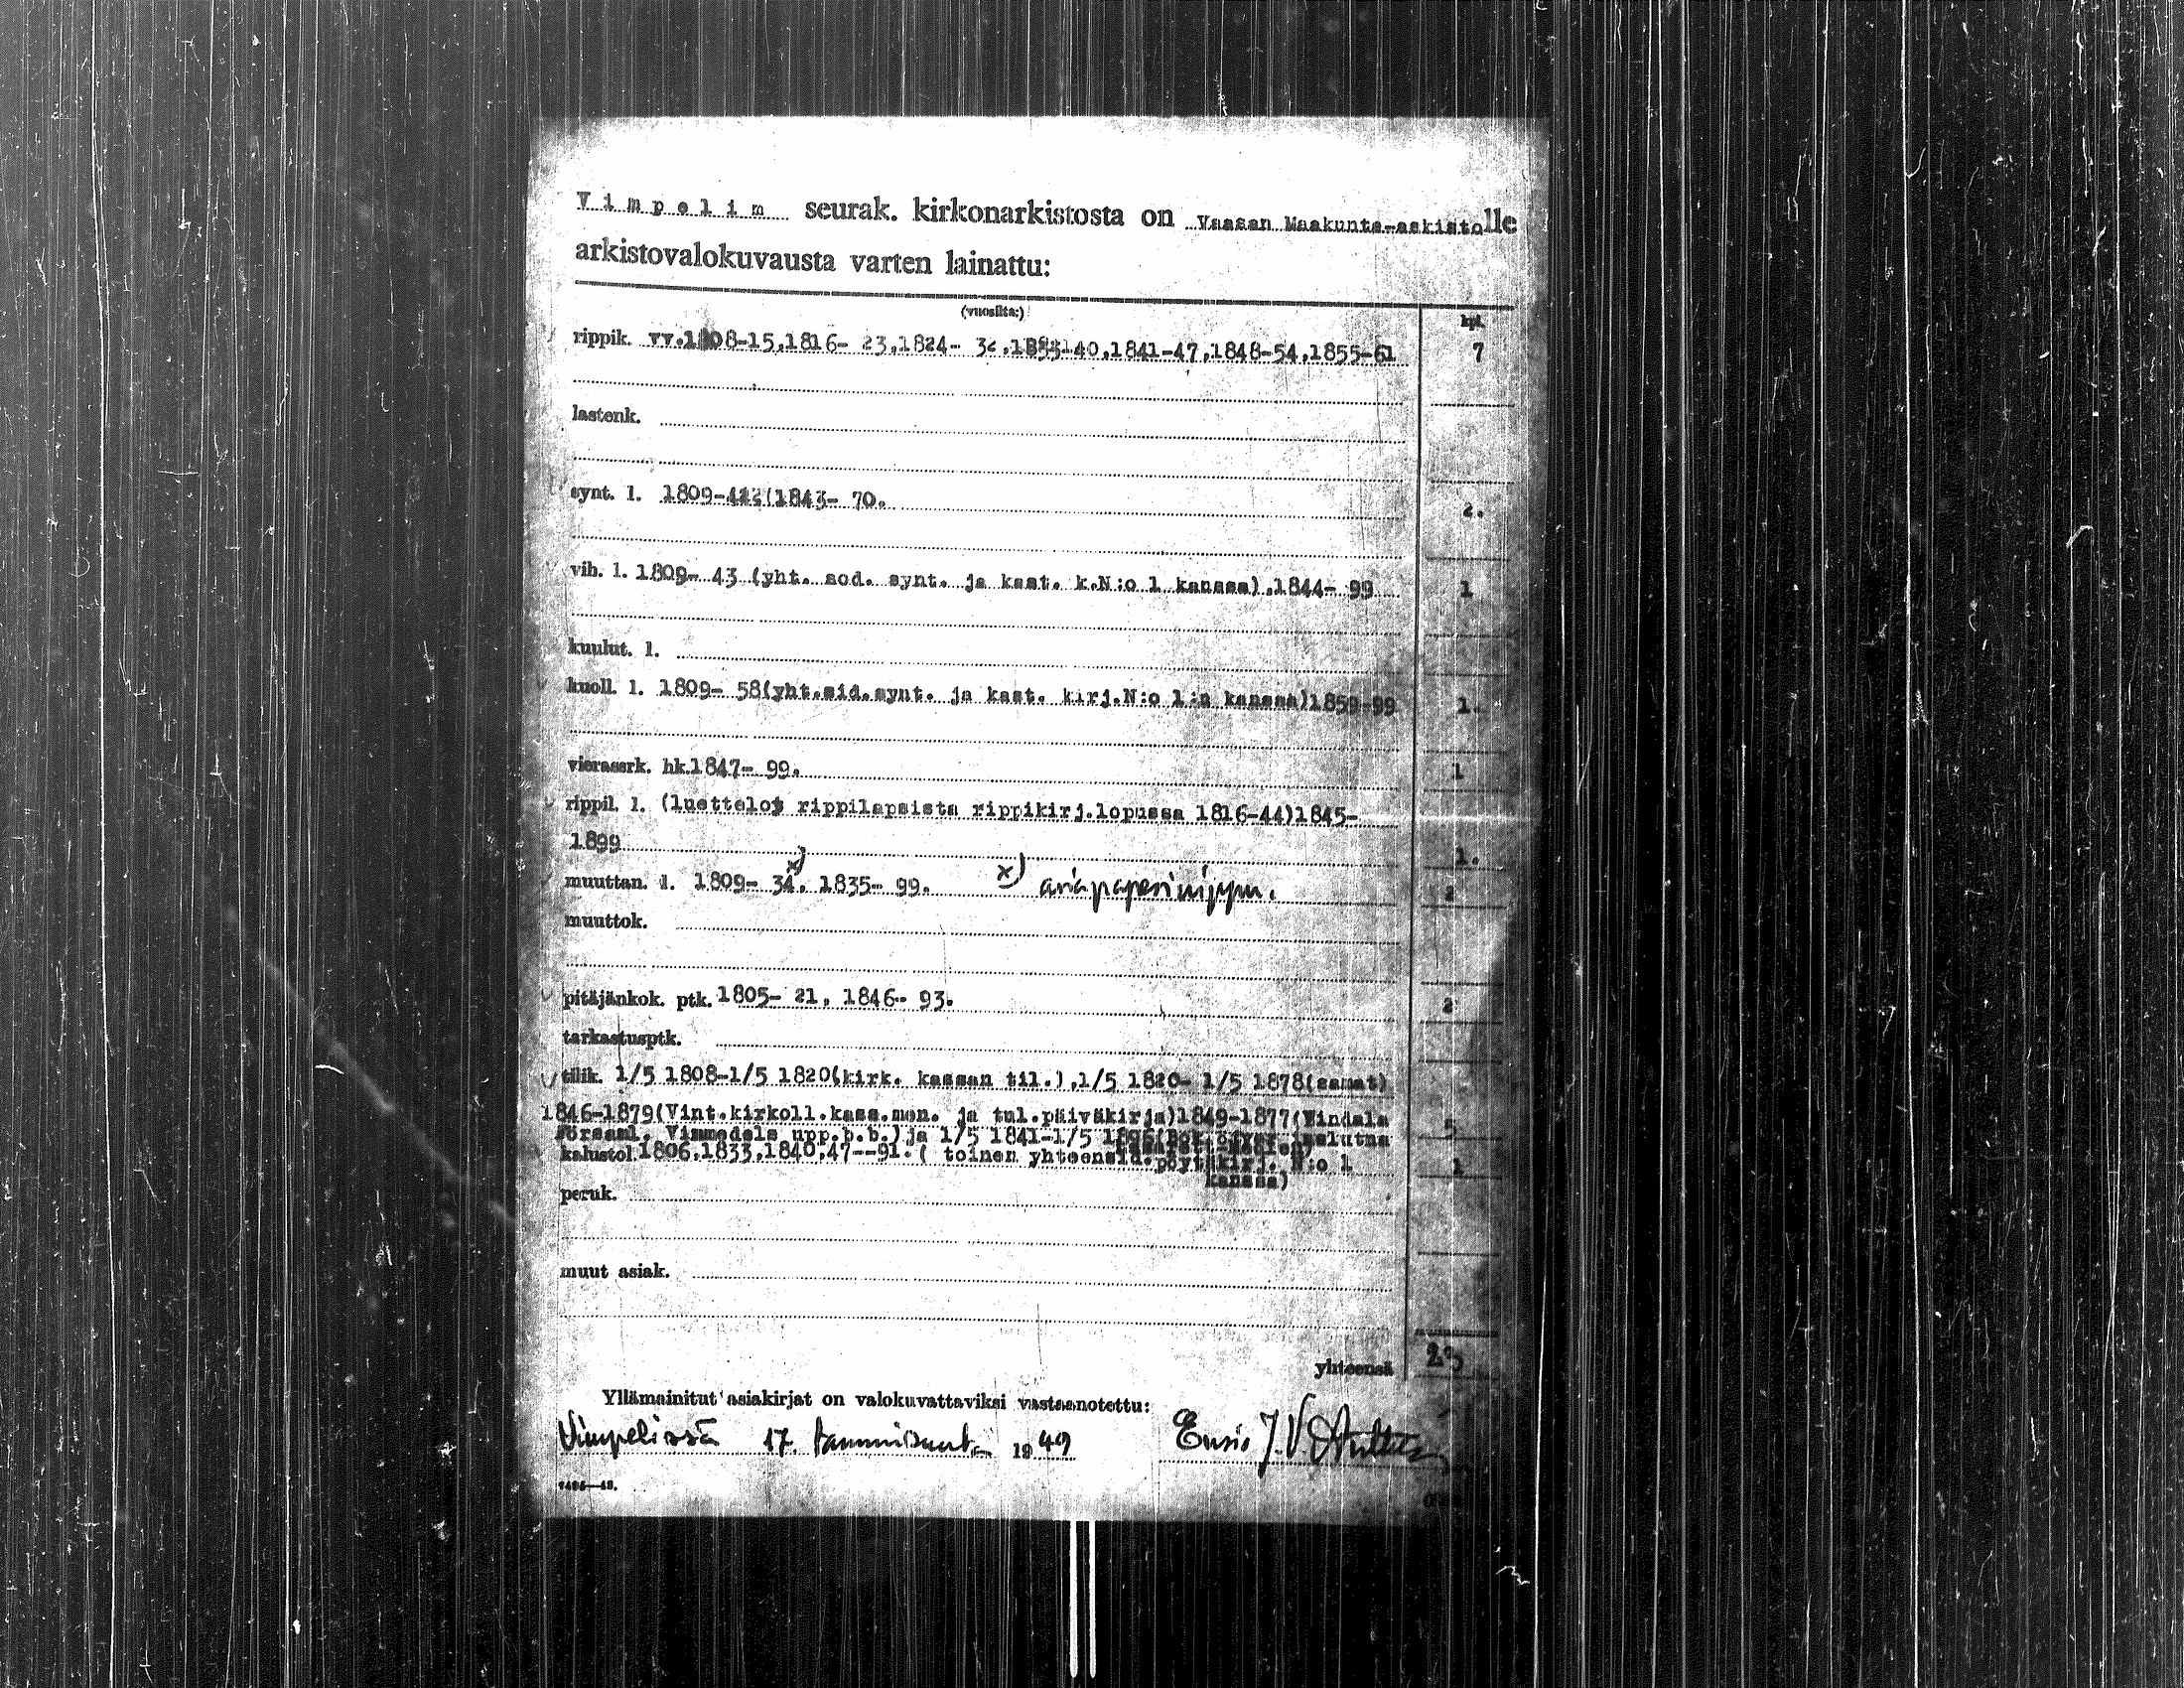 Vimpelim seurak. kirkonarkistosta on Vaasan Maakunta-askistolle
arkistovalokuvausta varten lainattu:
(vuosilta:) kpl.
rippik. vv.1808-15,1816- 23,1824- 3 .18 40,1841-47,1848-54,1855-61 7
lastenk.
synt. l. 1809- (1843- 70. 2.
vih. l. 1809- 43 (yht. sod. synt. ja kast. k.N:o 1 kanssa),1844- 99 1
kuulut. l.
kuoll. l. 1809- 58(yht.sid.synt. ja kast. kirj.N:o 1:n kanssa)1859-99 1.
vierassrk. hk.1847- 99. 1
rippil. l. (luettelot rippilapsista rippikirj.lopussa 1816-44)1845-
1899 1.
muuttan. l. 1809- 34. x) 1835- 99. x) 2
muuttok.
pitäjänkok. ptk. 1805- 21, 1846- 93. 2
tarkastusptk.
tilik. 1/5 1808-1/5 1820(kirk. kassan til.),1/5 1820- 1/5 1878(samat)
1846-1879(Vint.kirkoll.kass.men. ja tul.päiväkirja)1849-1877(Windala
församl. upp.b.b.)ja 1/5 1841-1/5 5
kalustol. 1806,1833,1840,47--91.( toinen yhteensid.pöytäkirj. N:o 1 1
kanssa)
peruk.
muut asiak.
yhteensä 23
Yllämainitut asiakirjat on valokuvattaviksi vastaanotettu:
Vimpelissä 17. tammikuuta 1949 J.V.